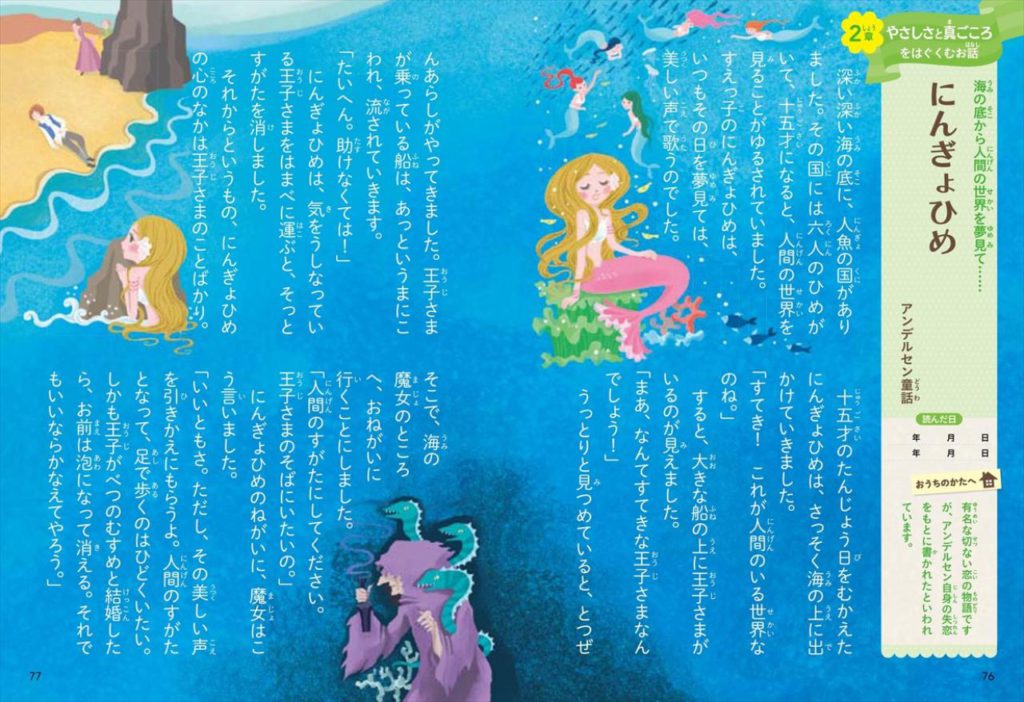 2章
やさしさと真ごころ
をはぐくむお話
海の底から人間の世界を夢見て……
にんぎょひめ
アンデルセン童話
読んだ日
年 月 日
年 月 日
おうちのかたへ
有名な切ない恋の物語です
が、アンデルセン自身の失恋
をもとに書かれたといわれ
ています。
深い深い海の底に、人魚の国があり
ました。その国には六人のひめが
いて、十五才になると、人間の世界を
見ることがゆるされていました。
すえっ子のにんぎょひめは、
いつもその日を夢見ては、
美しい声で歌うのでした。
十五才のたんじょう日をむかえた
にんぎょひめは、さっそく海の上に出
かけていきました。
「すてき! これが人間のいる世界な
のね。」
すると、大きな船の上に王子さまが
いるのが見えました。
「まあ、なんてすてきな王子さまなん
でしょう!」
うっとりと見つめていると、とつぜ
んあらしがやってきました。王子さま
が乗っている船は、あっというまにこ
われ、流されていきます。
「たいへん。助けなくては!」
にんぎょひめは、気をうしなってい
る王子さまをはまべに運ぶと、そっと
すがたを消しました。
それからというもの、にんぎょひめ
の心のなかは王子さまのことばかり。
そこで、海の
魔女のところ
へ、おねがいに
行くことにしました。
「人間のすがたにしてください。
王子さまのそばにいたいの。」
にんぎょひめのねがいに、魔女はこ
う言いました。
「いいともさ。ただし、その美しい声
を引きかえにもらうよ。人間のすがた
となって、足で歩くのはひどくいたい。
しかも王子がべつのむすめと結婚した
ら、お前は泡になって消える。それで
もいいならかなえてやろう。」
76
77